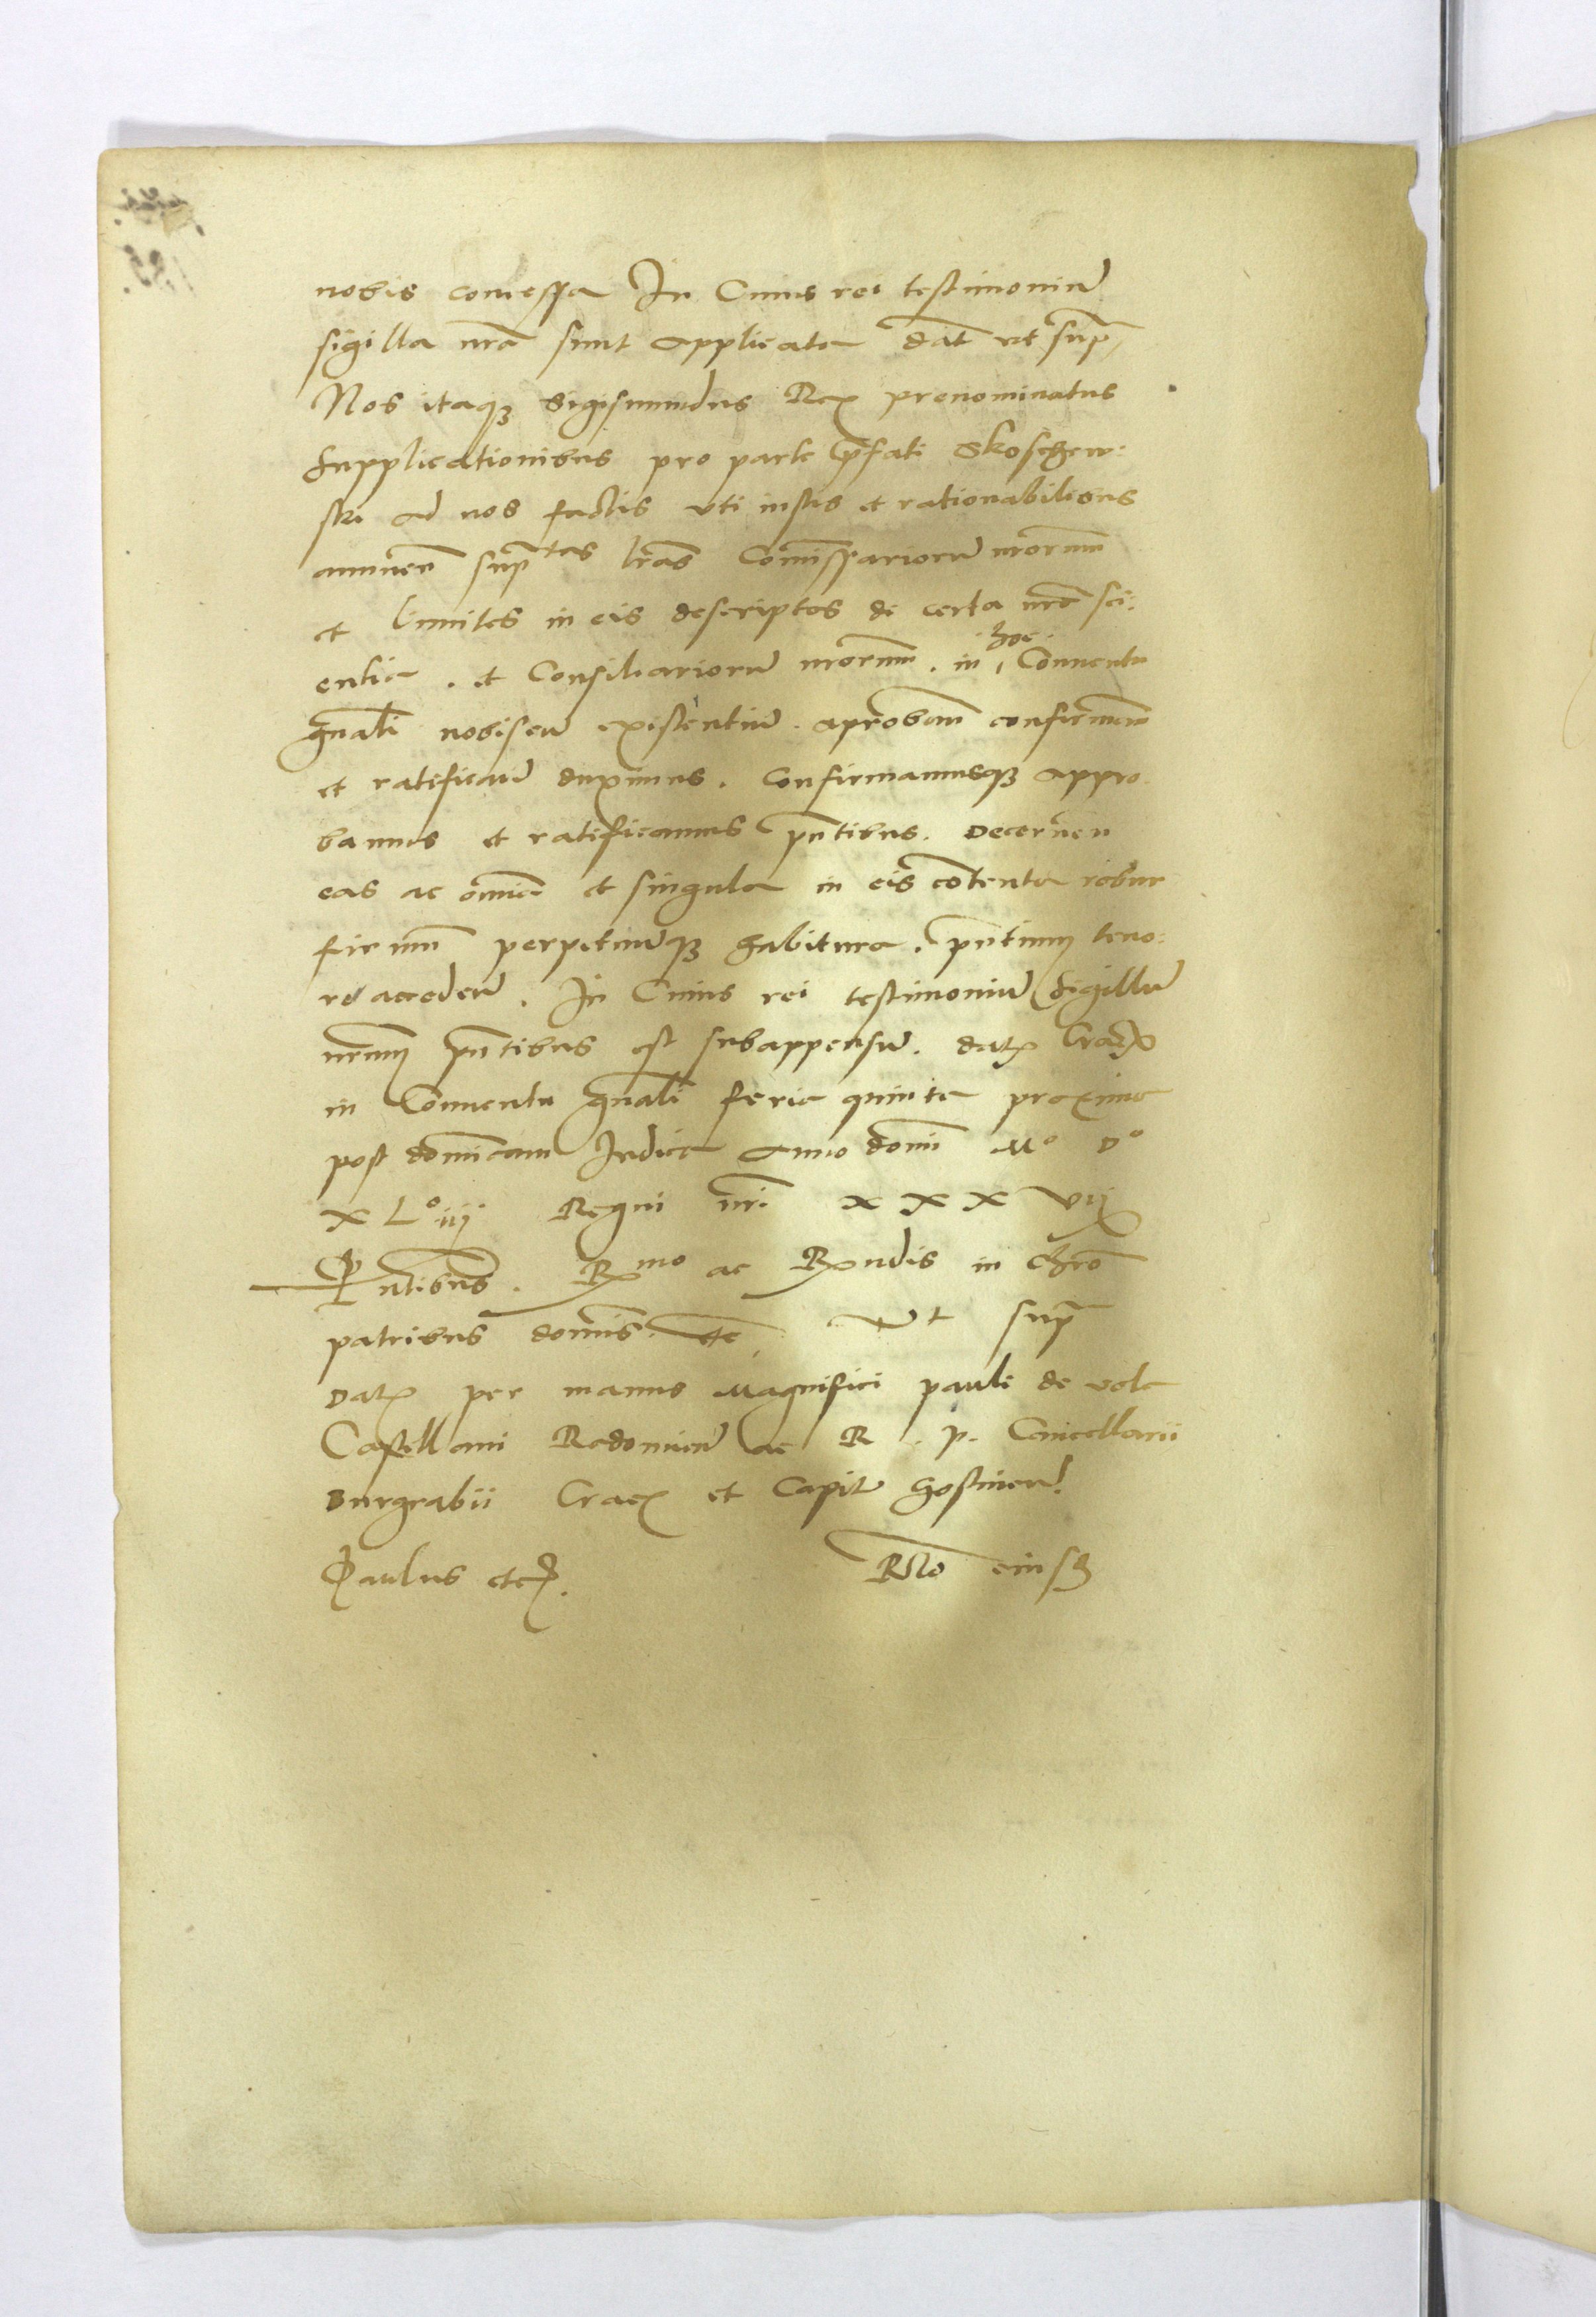 nobis concessa In Cuius rei testimoniũ
sigilla nrã sunt applicata dat̃ ut supr̃
Nos itaqз Sigismundus Rex prenominatus
Supplicationibus pro parte p̃fati Skoschew:
ski ad nos factis uti iustis et rationabilibus
annuen̄ supr̃tas lrãs Com̃issariorũ nrõrum
et limites in eis descriptos de certa nrã sci:
entia . et Consiliariorũ nrõrum . in hoc Conuentu
gñali nobiscũ existentiũ . aproban̄ confirman̄
et ratifican̄ duximus . Confirmamusqз appro
bamus et ratificamus pñtibus . Decernen̄
eas ac om̃ia et singula in eis contenta robur
firmũ perpetuũqз habitura . pñtium teno:
re accedeñ . In Cuius rei testimoniũ Sigillũ
nrũm pñtibus est subappensũ . dat̃ Crac̃
in Conuentu gñali feria quinta proxima
post dom̃icam Iudica anno domĩ Mº Dº
XLº iij Regni nrĩ XXX vij
Pñtibus . Rmo ac Rndis in chrõ
patribus domĩs etc̃ Ut supr̃
Dat̃ per manus Magnifici pauli de vola
Castellani Radomieñ ac R . p . Cancellarii
Burgrabii Crac̃ et Capit̃ Gostineñ
Paulus etc̃. Rlõ eiusdẽ